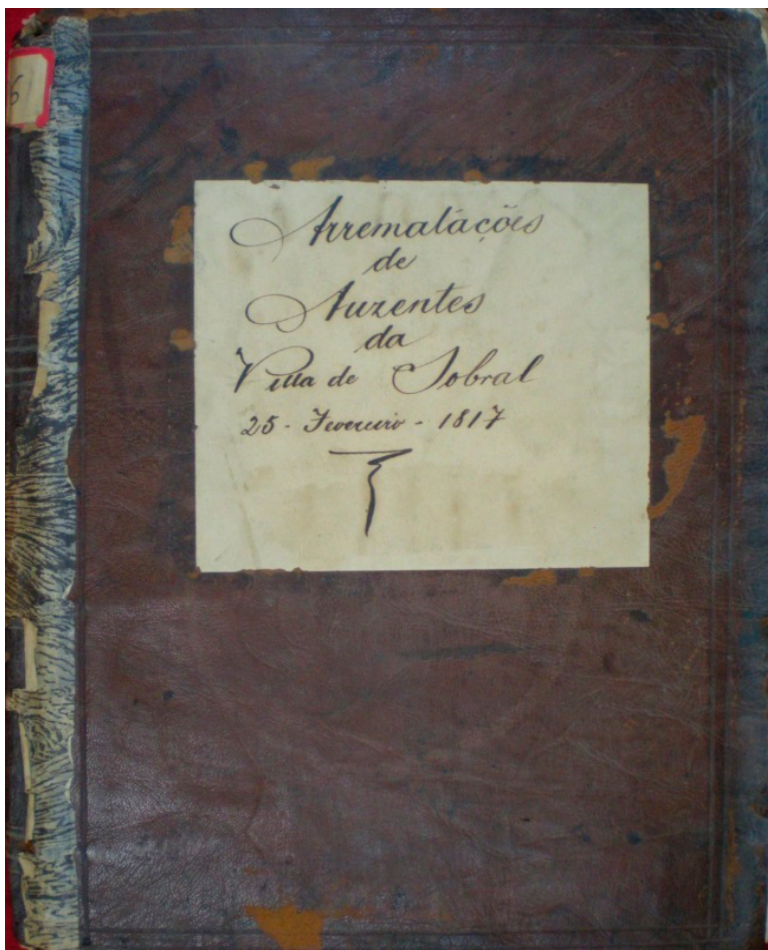 6
Arrematações
de
Auzentes
da
Villa de Sobral
25 - Fevereiro - 1817